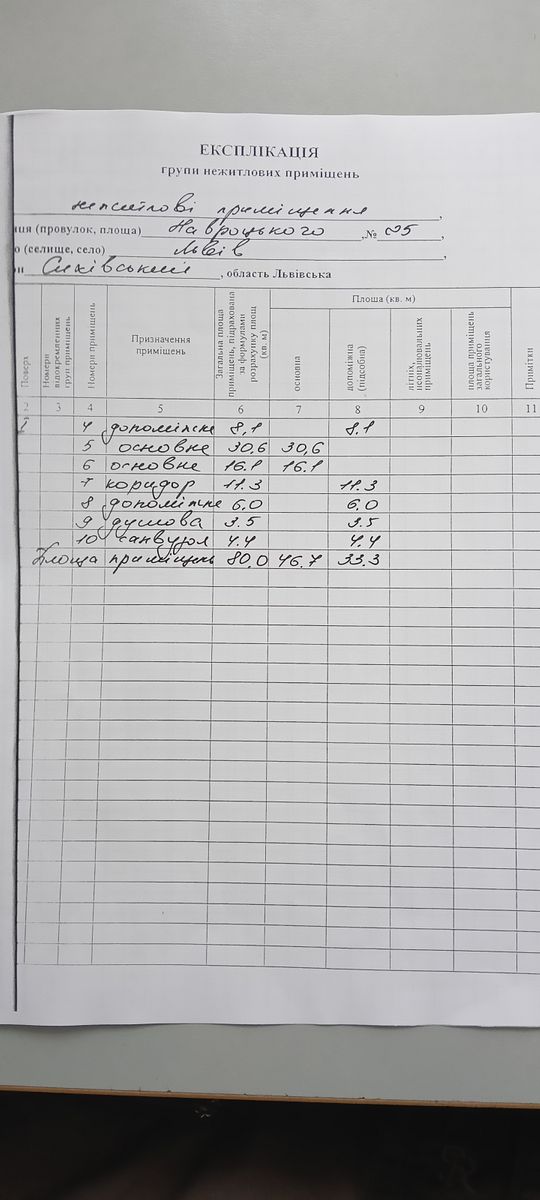 ЕКСПЛІКАЦІЯ
групи нежитлових приміщень
нежитлові приміщення,
иця (провулок, площа) Навроцького, № 25,
о (селище, село) Львів,
он Сихівський, область Львівська
Поверх
Номери відокремлених груп приміщень
Номери приміщень
Призначення приміщень
Загальна площа приміщень, підрахована за формулами розрахунку площ (кв. м)
Площа (кв. м)
основна
допоміжна (підсобна)
літніх, неопалювальних приміщень
площа приміщень загального користування
Примітки
2 3 4 5 6 7 8 9 10 11
I 4 допоміжне 8,1 8.1
5 основне 30,6 30,6
6 основне 16.1 16.1
7 коридор 11.3 11.3
8 допоміжне 6.0 6.0
9 душова 3.5 3.5
10 санвузол 4.4 4.4
Площа приміщень 80,0 46.7 33.3